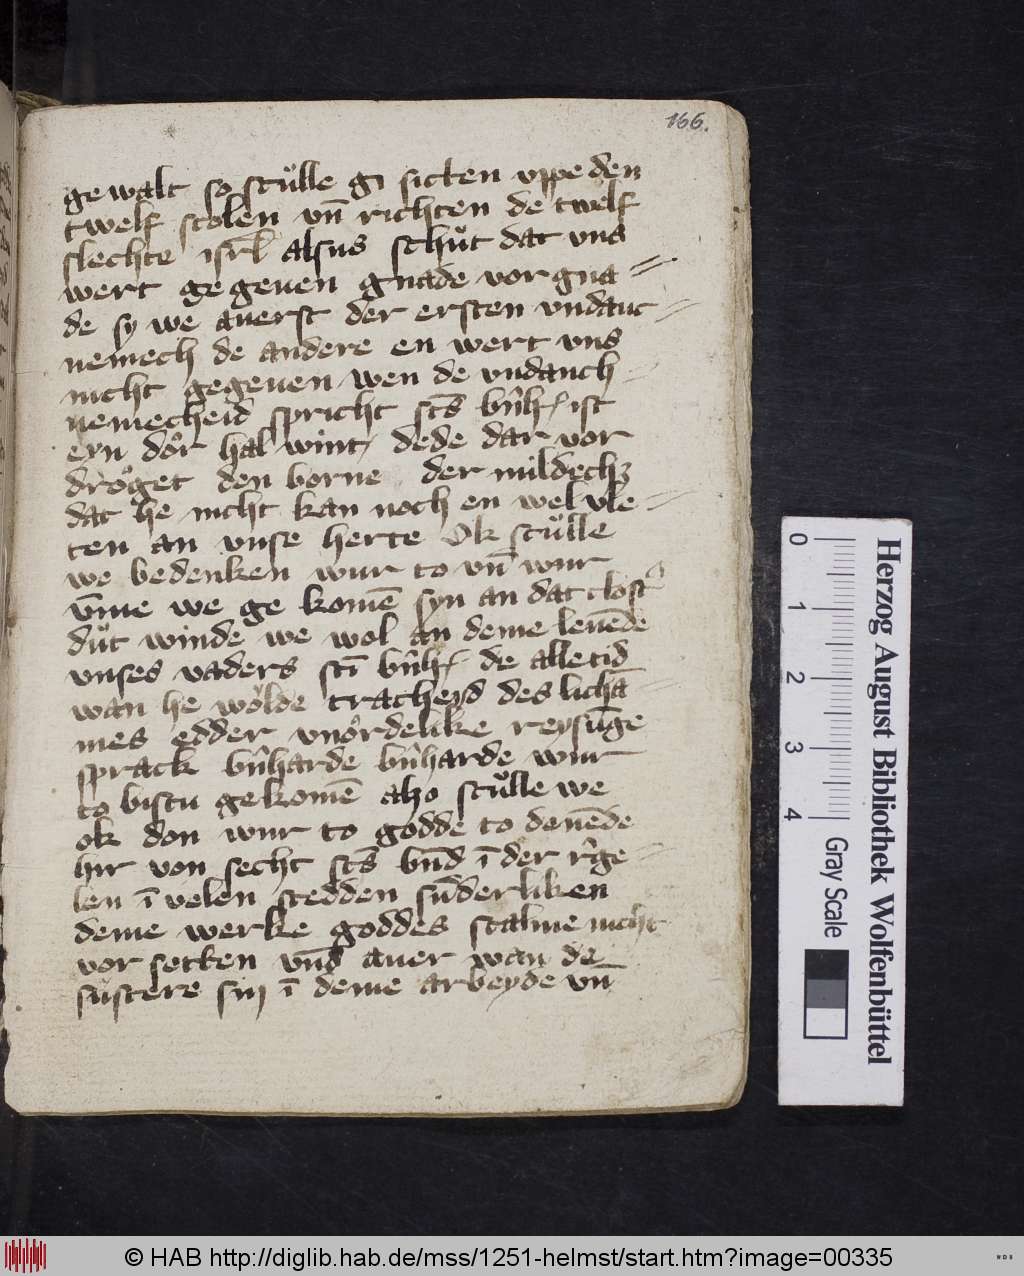 166.
gewalt so scülle gi sitten uppe den
twelf stolen vn̄ richten de twelf
slechte isrl̄ alsus schüt dat uns
wert gegeuen gnade vor gna =
de sy we auerst der ersten vndanc
nemech de andere en wert uns
nicht gegeuen wen de vndanch
nemecheid spricht sc̄s ist
eyn dor hal wint dede dar vor
dröget den borne der mildech
dat he nicht kan noch en wel vle =
ten an vnse herte Ok scülle
we bedenken wur to vn̄ wur
vm̄e we ge komē syn an dat clost
düt winde we wol an deme leuēde
vnses vaders sc̄i de alle tid
wan he wolde tracheyd des licha =
mes edder vnördelike reysūge
sprack bn̄harde bn̄harde wur
to bistu gekomē also scülle we
ok don wur to godde to denēde
hir von secht sc̄s bn̄d ī der rege =
len ī velen stedden sūderliken
deme werke goddes scalme nicht
vor setten vn̄d auer wan de
süstere sin ī deme arbeyde vn̄
0 1 2 3 4
Gray Scale
Herzog August Bibliothek Wolfenbüttel
© HAB http://diglib.hab.de/mss/1251-helmst/start.htm?image=00335